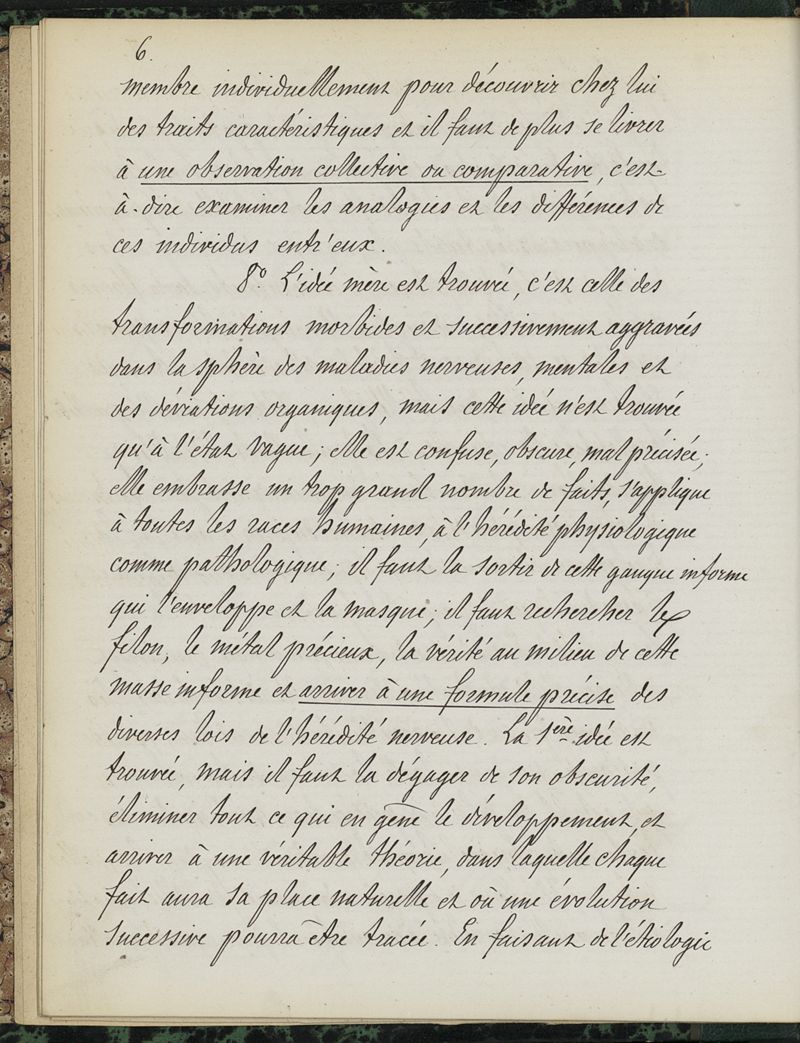 6.
membre individuellement pour découvrir chez lui
des traits caractéristiques et il faut de plus se livrer
à une observation collective ou comparative, c'est-
à-dire examiner les analogies et les différences de
ces individus entr'eux.
8° L'idée mère est trouvée, c'est celle des
transformations morbides et successivement aggravées
dans la sphère des maladies nerveuses, mentales et
des déviations organiques, mais cette idée n'est trouvée
qu'à l'état vague; elle est confuse, obscure, mal précisée;
elle embrasse un trop grand nombre de faits, s'applique
à toutes les races humaines, à l'hérédité physiologique
comme pathologique; il faut la sortir de cette gangue informe
qui l'enveloppe et la masque; il faut rechercher le
filon, le métal précieux, la vérité au milieu de cette
masse informe et arriver à une formule précise des
diverses lois de l'hérédité nerveuse. La 1ère idée est
trouvée, mais il faut la dégager de son obscurité,
éliminer tout ce qui en gêne le développement, et
arriver à une véritable théorie, dans laquelle chaque
fait aura sa place naturelle et où une évolution
successive pourra être tracée. En faisant de l'étiologie